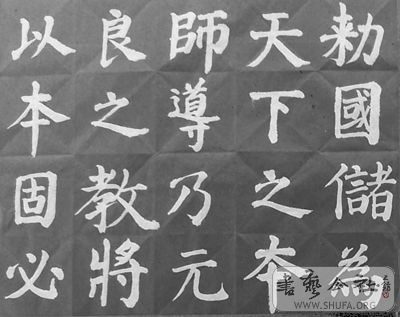 勅國儲為
天下之本
師導乃元
良之教將
以本固必
書藝公社
WWW.SHUFA.ORG